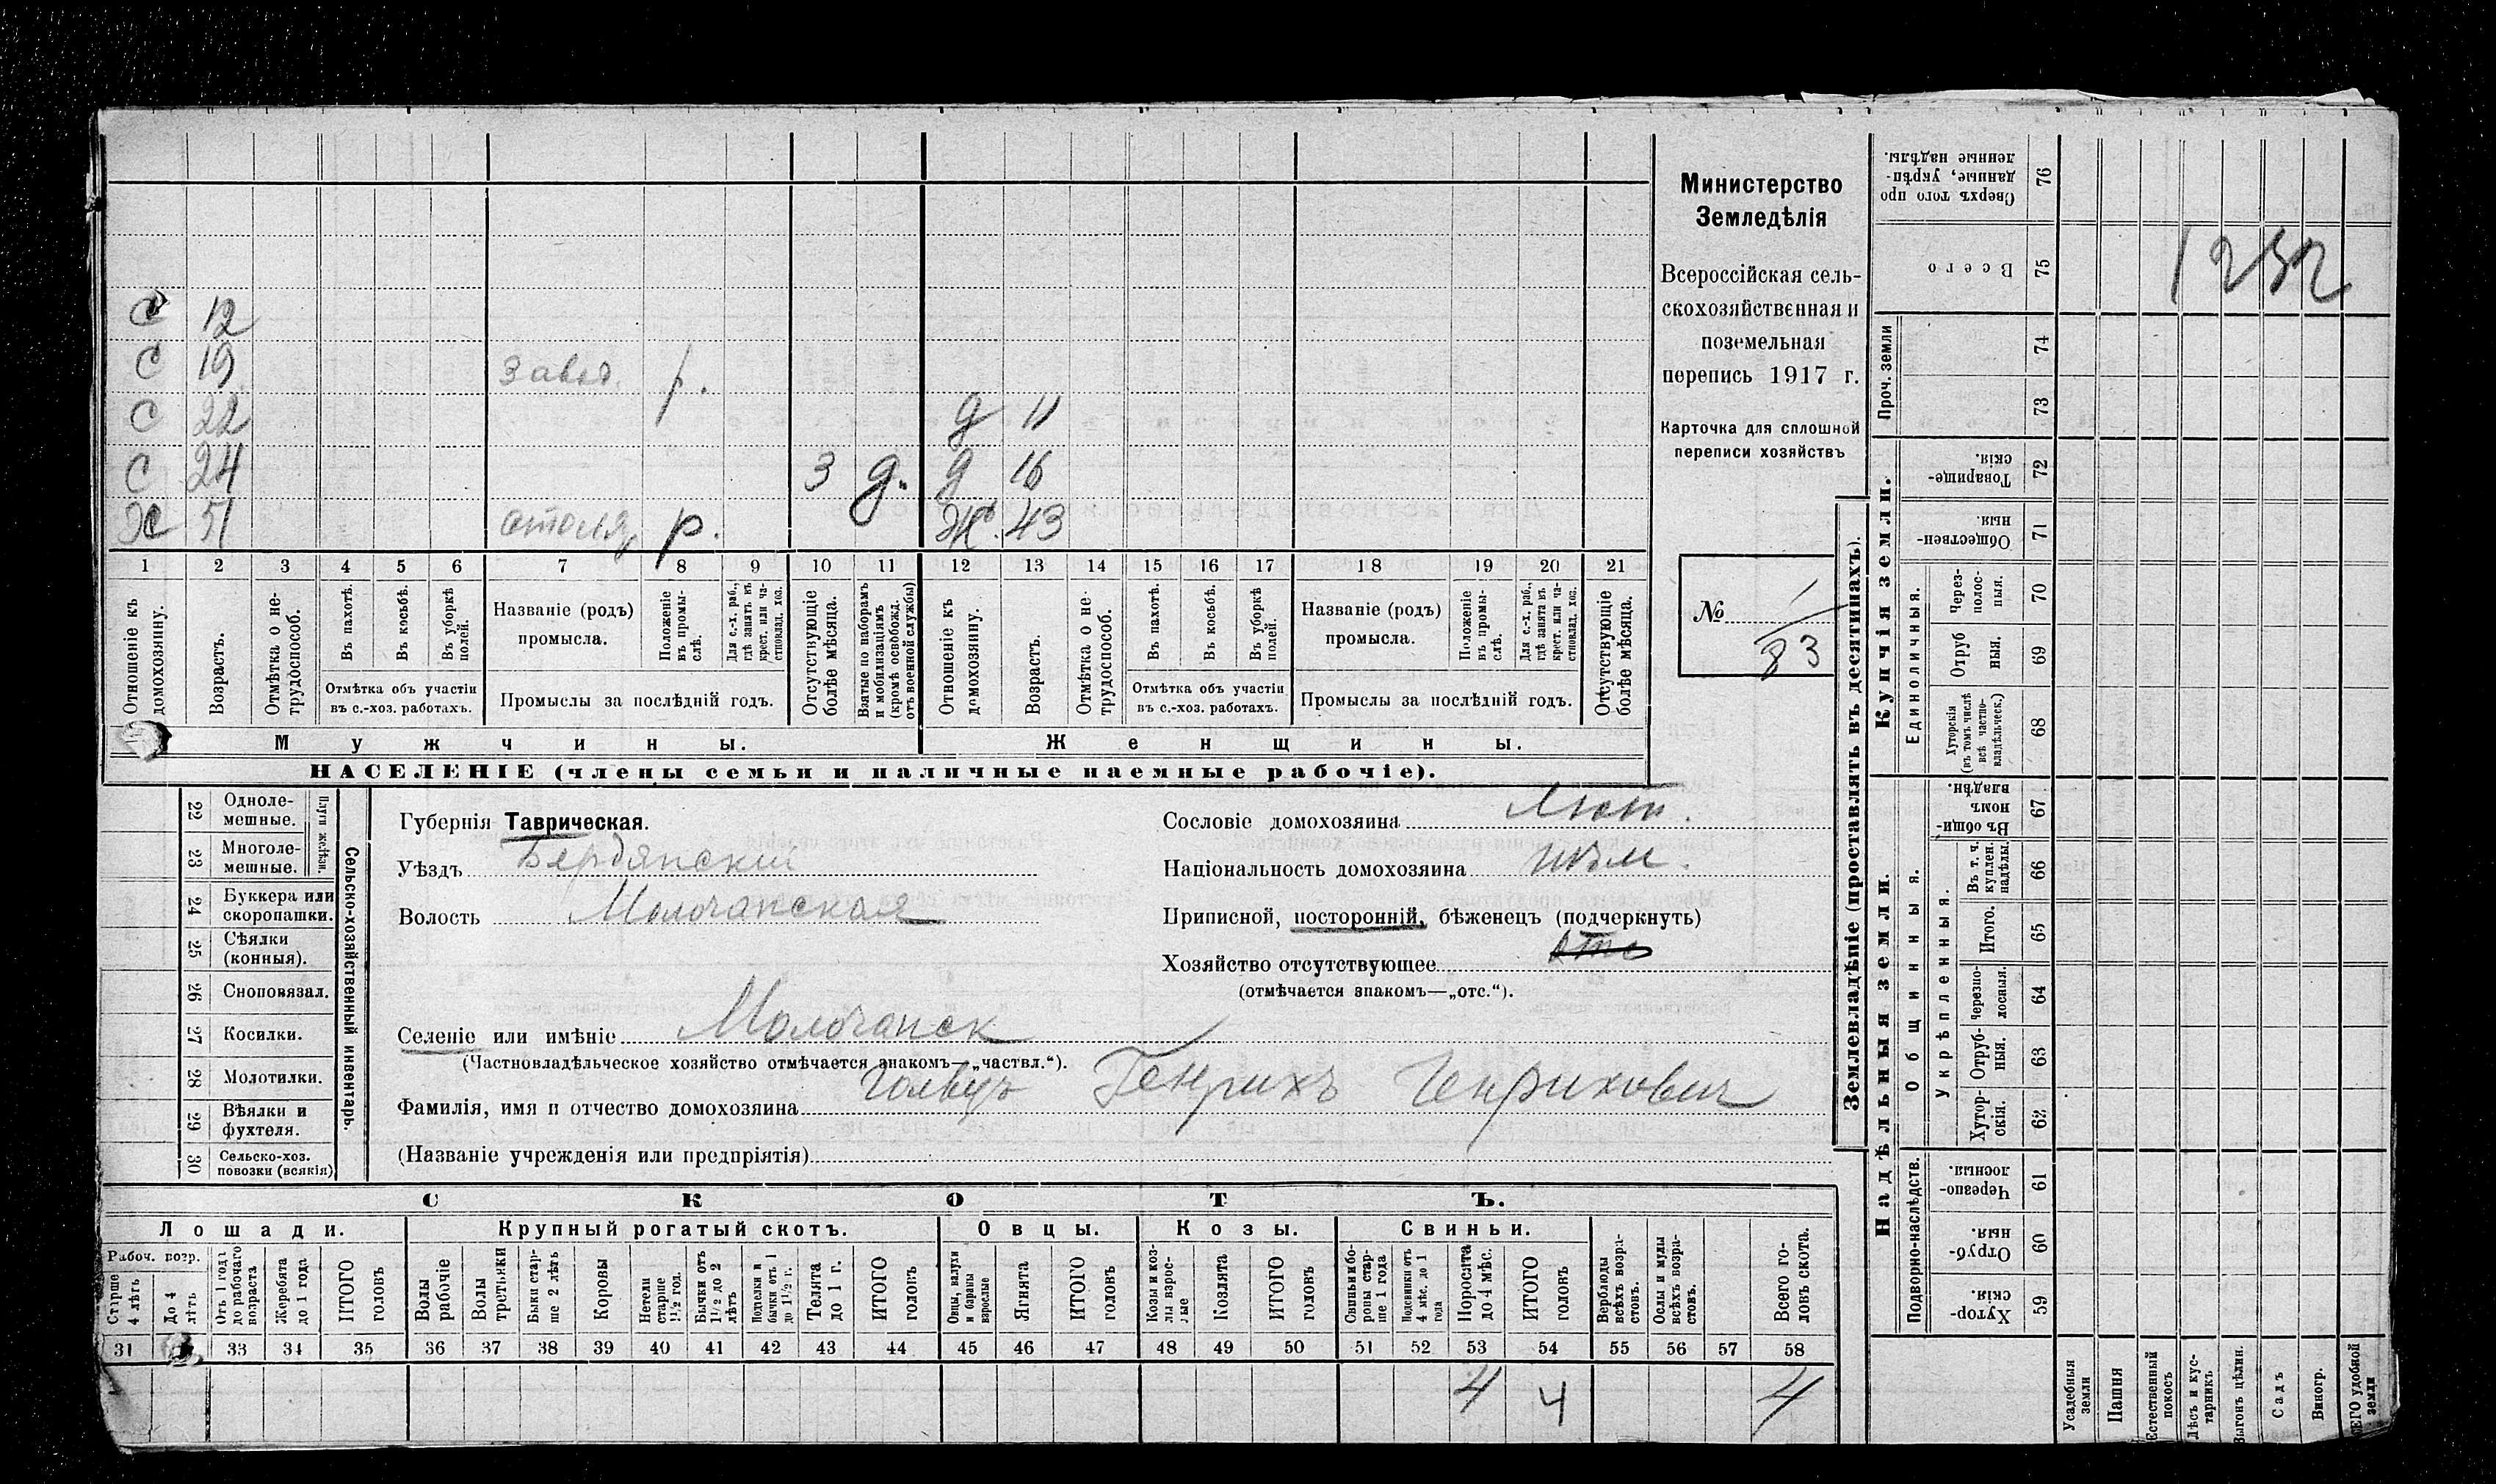 С 12
С 19 завод. р.
С 22 д 11
С 24 3 д. д 16
Х 51 столяр р. Ж. 43
1 2 3 4 5 6 7 8 9 10 11 12 13 14 15 16 17 18 19 20 21
Отношеніе къ домохозяину.
Возрастъ.
Отмѣтка о нетрудоспособ.
Въ пахотѣ.
Въ косьбѣ.
Въ уборкѣ полей.
Отмѣтка объ участіи въ с.-хоз. работахъ.
Названіе (родъ) промысла.
Положеніе въ промыслѣ.
Для с.-х. раб., гдѣ занятъ въ крест. или частновлад. хоз.
Промыслы за послѣдній годъ.
Отсутствующіе болѣе мѣсяца.
Взятые по наборамъ и мобилизаціямъ (кромѣ освобожд. отъ военной службы)
Отношеніе къ домохозяину.
Возрастъ.
Отмѣтка о нетрудоспособ.
Въ пахотѣ.
Въ косьбѣ.
Въ уборкѣ полей.
Отмѣтка объ участіи въ с.-хоз. работахъ.
Названіе (родъ) промысла.
Положеніе въ промыслѣ.
Для с.-х. раб., гдѣ занята въ крест. или частновлад. хоз.
Промыслы за послѣдній годъ.
Отсутствующіе болѣе мѣсяца.
Мужчины.
Женщины.
НАСЕЛЕНІЕ (члены семьи и наличные наемные рабочіе).
Министерство
Земледѣлія
Всероссійская сель-
скохозяйственная и
поземельная
перепись 1917 г.
Карточка для сплошной
переписи хозяйствъ
№ 1
83
22 Одноле-
мешные.
23 Многоле-
мешные.
Плуги желѣзн.
24 Буккера или
скоропашки.
25 Сѣялки
(конныя).
26 Сноповязал.
27 Косилки.
28 Молотилки.
29 Вѣялки и
фухтеля.
30 Сельско-хоз.
повозки (всякія)
Сельско-хозяйственный инвентарь.
Губернія Таврическая.
Уѣздъ Бердянскій
Волость Молочанская
Селеніе или имѣніе Молочанск
(Частновладѣльческое хозяйство отмѣчается знакомъ—„частвл.“).
Фамилія, имя и отчество домохозяина Генрихъ Генрихович
(Названіе учрежденія или предпріятія)
Сословіе домохозяина
Національность домохозяина нѣм.
Приписной, посторонній, бѣженецъ (подчеркнуть)
Хозяйство отсутствующее отс
(отмѣчается знакомъ—„отс.“).
СКОТЪ.
Лошади. Крупный рогатый скотъ. Овцы. Козы. Свиньи.
Рабоч. возр.
Старше 4 лѣтъ
До 4 лѣтъ
Отъ 1 года до рабочаго возраста
Жеребята до 1 года
ИТОГО головъ
Волы рабочіе
Волы третьяки
Быки старше 2 лѣтъ
Коровы
Нетели старше 1½ год.
Бычки отъ 1½ до 2 лѣтъ
Подтелки и бычки отъ 1 до 1½ г.
Телята до 1 г.
ИТОГО головъ
Овцы, валухи и бараны взрослые
Ягнята
ИТОГО головъ
Козы и козлы взрослые
Козлята
ИТОГО головъ
Свиньи и боровы старше 1 года
Подсвинки отъ 4 мѣс. до 1 года
Поросята до 4 мѣс.
ИТОГО головъ
Верблюды всѣхъ возрастовъ.
Ослы и мулы всѣхъ возрастовъ.
Всего головъ скота.
31 33 34 35 36 37 38 39 40 41 42 43 44 45 46 47 48 49 50 51 52 53 54 55 56 57 58
4 4 4
Землевладѣніе (проставлять въ десятинахъ).
Купчія земли.
Надѣльныя земли.
Сверхъ того проданные, укрѣпленные надѣлы. 76
Всего 75 1232
Проч. земли 74
73
Товарищескія. 72
Общественныя. 71
Единоличныя.
Черезполосныя. 70
Отрубныя. 69
Хуторскія (въ томъ числѣ всѣ частновладѣльческ.) 68
Общинныя.
Въ общинномъ владѣн. 67
Укрѣпленныя.
Въ т. ч. куплен. надѣлы. 66
Итого. 65
Черезполосныя. 64
Отрубныя. 63
Хуторскія. 62
Подворно-наслѣдств.
Черезполосныя. 61
Отрубныя. 60
Хуторскія. 59
Усадебныя земли
Пашня
Естественный покосъ
Лѣсъ и кустарникъ
Выгонъ цѣлин.
Садъ
Виногр.
ВСЕГО удобной земли